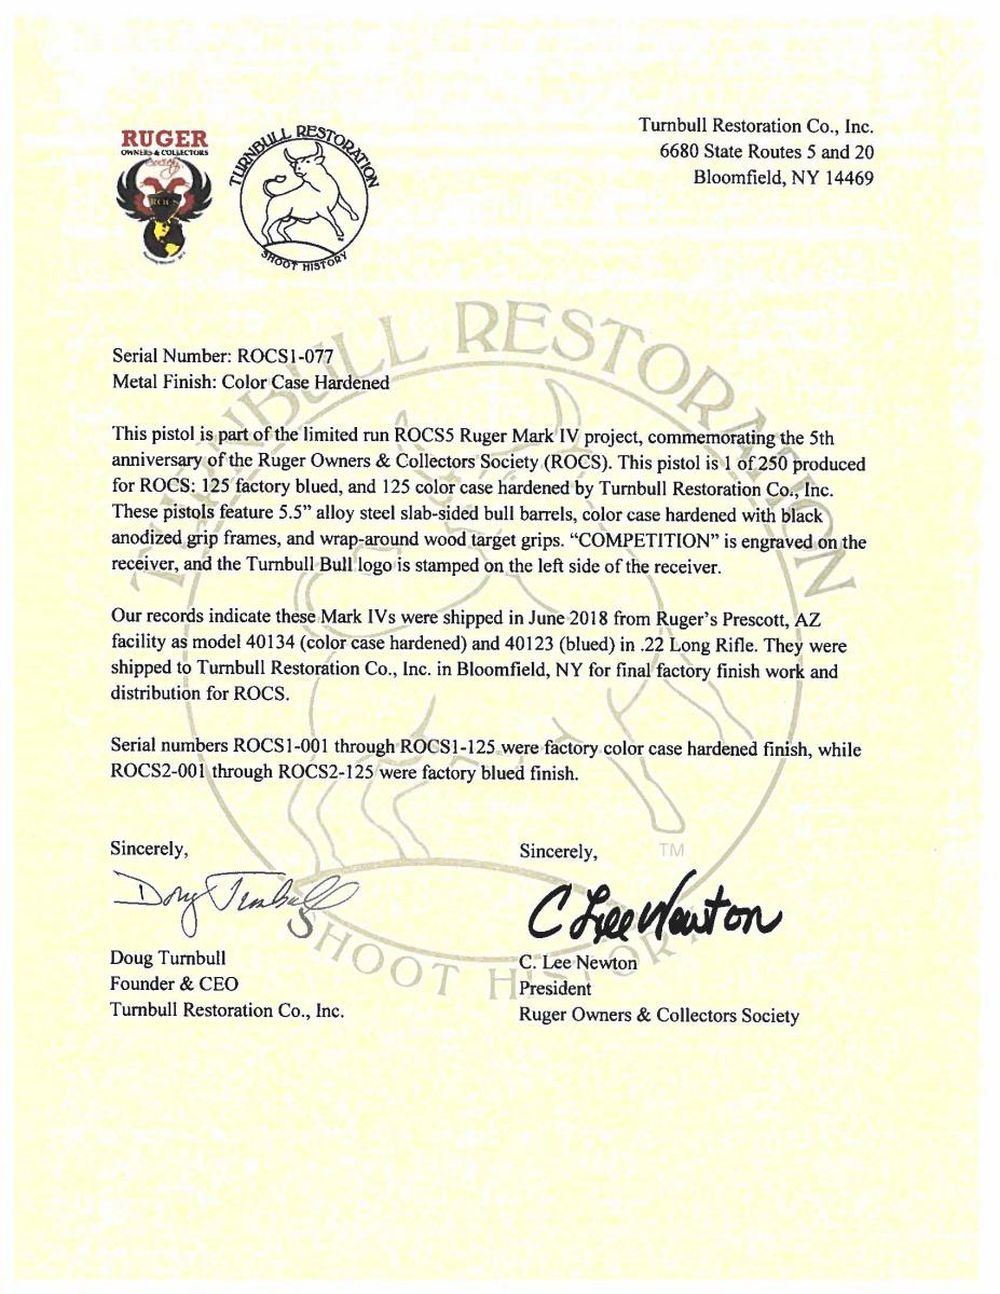 RUGER
OWNERS & COLLECTORS
Society
ROCS
TURNBULL RESTORATION
SHOOT HISTORY
Turnbull Restoration Co., Inc.
6680 State Routes 5 and 20
Bloomfield, NY 14469
TURNBULL RESTORATION
Serial Number: ROCS1-077
Metal Finish: Color Case Hardened
This pistol is part of the limited run ROCS5 Ruger Mark IV project, commemorating the 5th
anniversary of the Ruger Owners & Collectors Society (ROCS). This pistol is 1 of 250 produced
for ROCS: 125 factory blued, and 125 color case hardened by Turnbull Restoration Co., Inc.
These pistols feature 5.5” alloy steel slab-sided bull barrels, color case hardened with black
anodized grip frames, and wrap-around wood target grips. “COMPETITION” is engraved on the
receiver, and the Turnbull Bull logo is stamped on the left side of the receiver.
Our records indicate these Mark IVs were shipped in June 2018 from Ruger’s Prescott, AZ
facility as model 40134 (color case hardened) and 40123 (blued) in .22 Long Rifle. They were
shipped to Turnbull Restoration Co., Inc. in Bloomfield, NY for final factory finish work and
distribution for ROCS.
Serial numbers ROCS1-001 through ROCS1-125 were factory color case hardened finish, while
ROCS2-001 through ROCS2-125 were factory blued finish.
Sincerely,
Doug Turnbull
Doug Turnbull
Founder & CEO
Turnbull Restoration Co., Inc.
Sincerely,
C Lee Newton
C. Lee Newton
President
Ruger Owners & Collectors Society
TM
SHOOT HISTORY